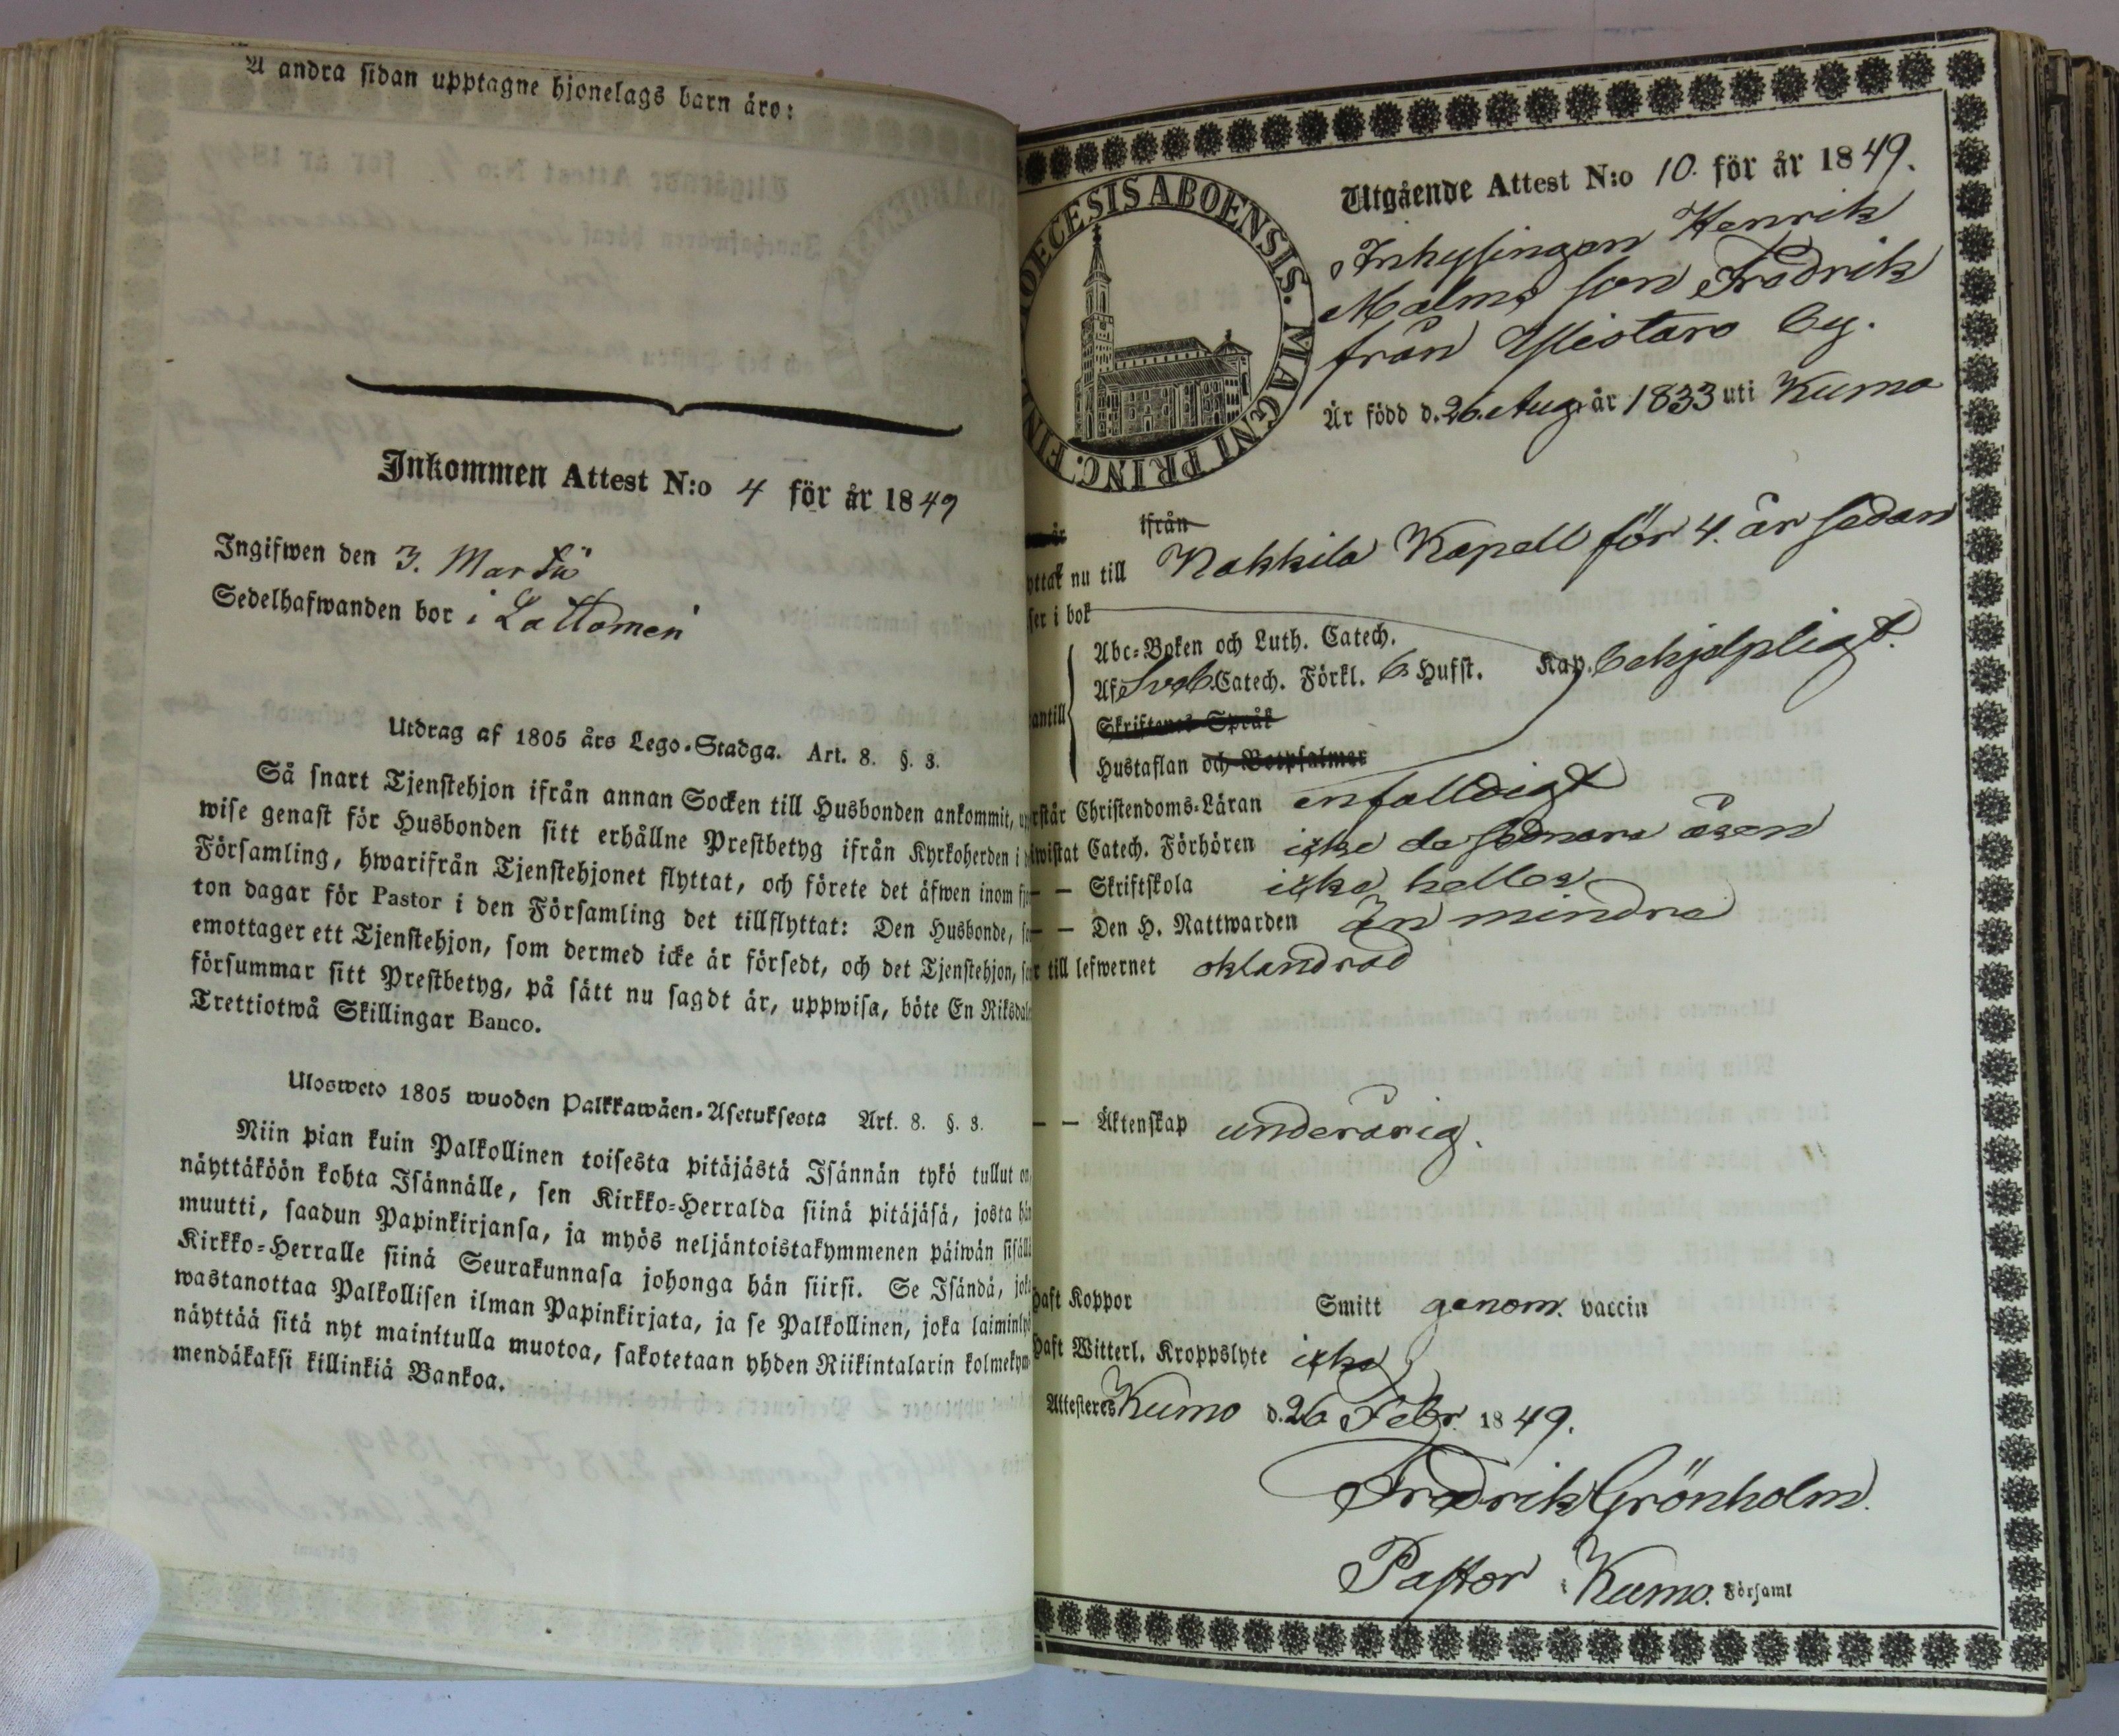 Å andra sidan upptagne hjonelags barn äro:
Inkommen Attest N:o 4 för år 1849
Ingifwen den 3. Martii
Sedelhafwanden bor i Lattomeri
Utdrag af 1805 års Lego-Stadga. Art. 8. §. 3.
Så snart Tjenstehjon ifrån annan Socken till Husbonden ankommit, upp
wise genast för Husbonden sitt erhållne Prestbetyg ifrån Kyrkoherden i
Församling, hwarifrån Tjenstehjonet flyttat, och förete det äfwen inom fjor
ton dagar för Pastor i den Församling det tillflyttat: Den Husbonde, so
emottager ett Tjenstehjon, som dermed icke är försedt, och det Tjenstehjon, so
försummar sitt Prestbetyg, på sätt nu sagdt är, uppwisa, böte En Riksdale
Trettiotwå Skillingar Banco.
Ulosweto 1805 wuoden Palkkawäen-Asetuksesta Art. 8. §. 3.
Niin pian kuin Palkollinen toisesta pitäjästä Isännän tykö tullut on,
näyttäköön kohta Isännälle, sen Kirkko-Herralda siinä pitäjäsä, josta hän
muutti, saadun Papinkirjansa, ja myös neljäntoistakymmenen päiwän sisällä
Kirkko-Herralle siinä Seurakunnasa johonga hän siirsi. Se Isändä, joka
wastanottaa Palkollisen ilman Papinkirjata, ja se Palkollinen, joka laiminlyö
näyttää sitä nyt mainitulla muotoa, sakotetaan yhden Riikintalarin kolmekym-
mendäkaksi killinkiä Bankoa.
DIOECESIS ABOENSIS. MAGNI PRINC. FIN
Utgående Attest N:o 10. för år 1849.
Inhysingen Henrik
Malms son Fredrik
från Ylistaro by.
Är född d. 26. Aug. år 1833 uti Kumo
ifrån
yttat nu till Nakkila Kapell för 4. år sedan
ser i bok
Abc-Boken och Luth. Catech.
Af Sveb. Catech. Förkl. 6. Hufst. Kap. behjelpligt.
antill
Skriftenes Språk
Hustaflan och Botpsalmer
rstår Christendoms-Läran enfaldigt
iwistat Catech. Förhören icke de sednare åren
— — Skriftskola icke heller
— — Den H. Nattwarden Än mindre
r till lefwernet oklandrad
— — Äktenskap underårig.
haft Koppor Smitt genom. vaccin
haft Witterl. Kroppslyte icke
Attesteres Kumo d. 26 Febr. 1849.
Fredrik Grönholm.
Pastor i Kumo. Församl